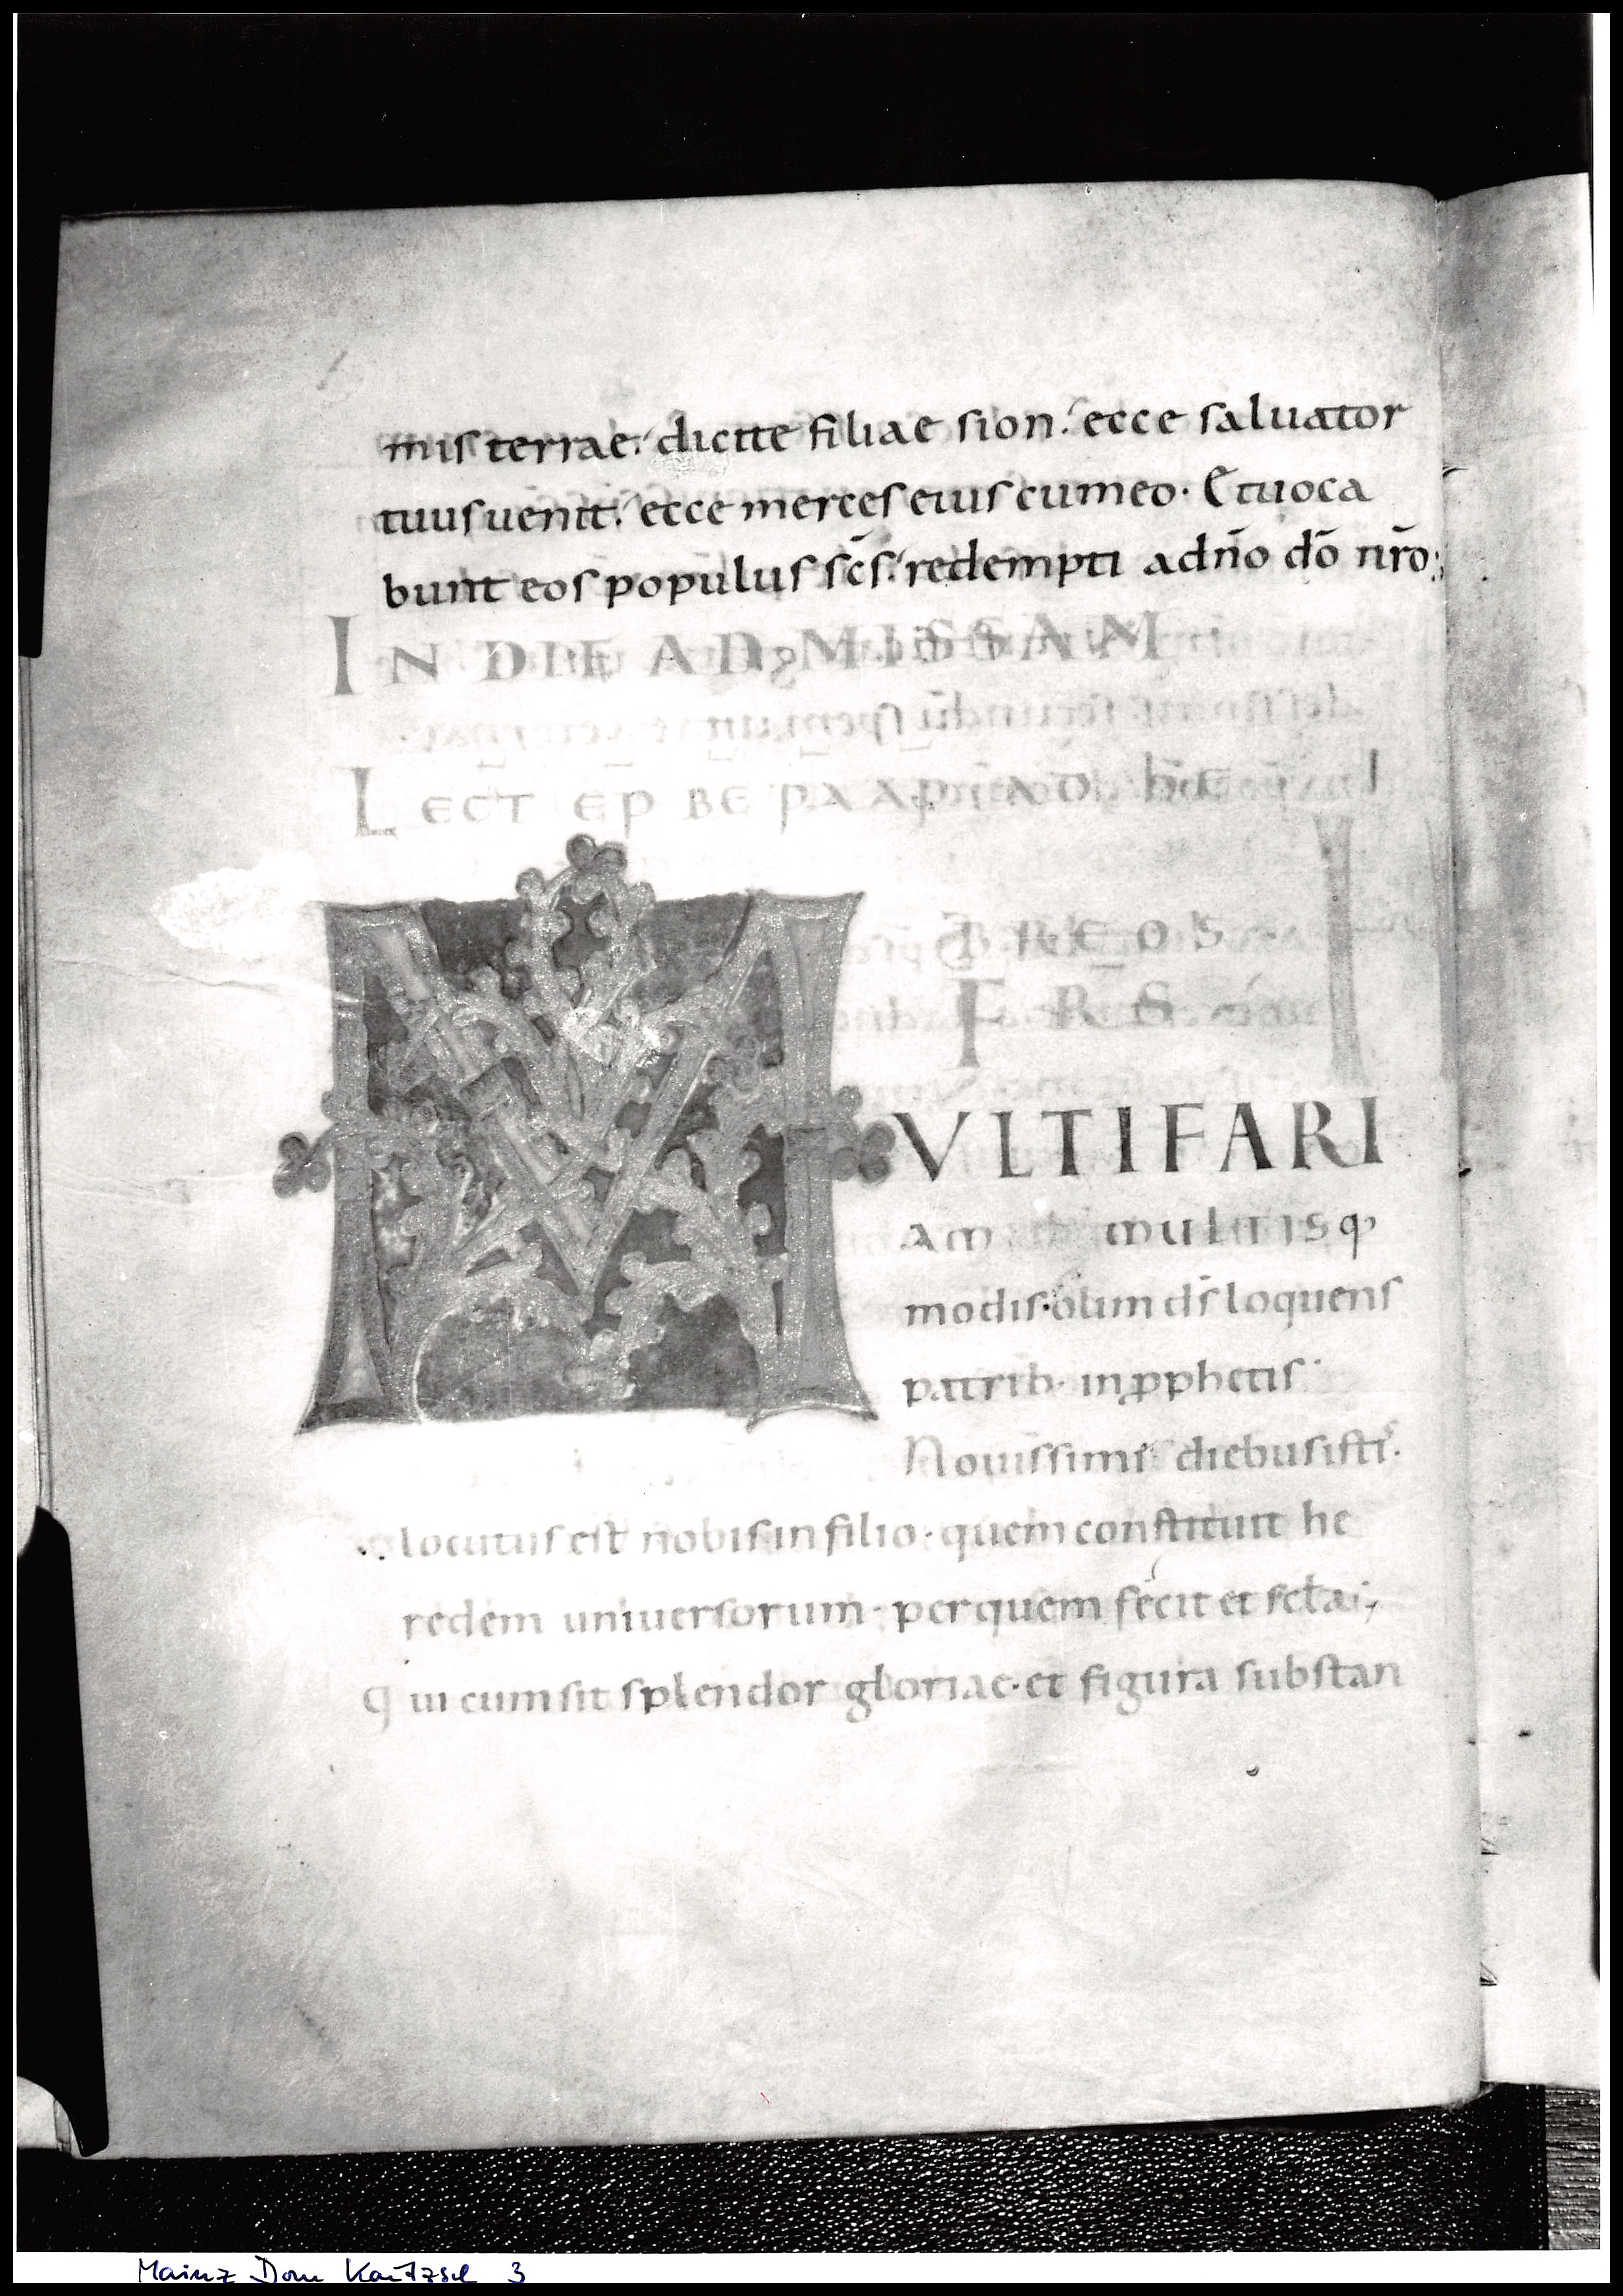 mis terrae. dicite filiae sion. ecce saluator
tuus uenit. ecce merces eius cum eo. Et uoca
bunt eos populus scs̄. redempti ad dn̄o dō nr̄o;
IN DIE AD MISSAM
LECT EP BE PA AP AD HE
BREOS
FRS
MVLTIFARI
AM multisq;
modis. olim ds̄ loquens
patrib. in ꝓphetis.
Nouissime diebus istis.
locutus est nobis in filio. quem constituit he
redem uniuersorum. per quem fecit et scła;
Qui cum sit splendor gloriae. et figura substan
Mainz Dom Kautzsch 3